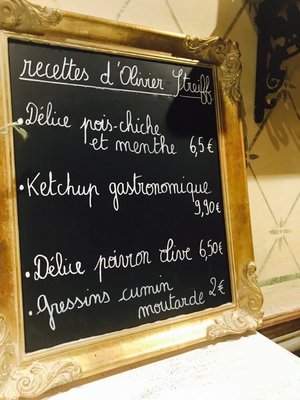 recettes d'Olivier Streiff
• Délice pois-chiche
et menthe 6,5€
• Ketchup gastronomique
9,90€
• Délice poivron olive 6,50€
• gressins cumin
moutarde 2€